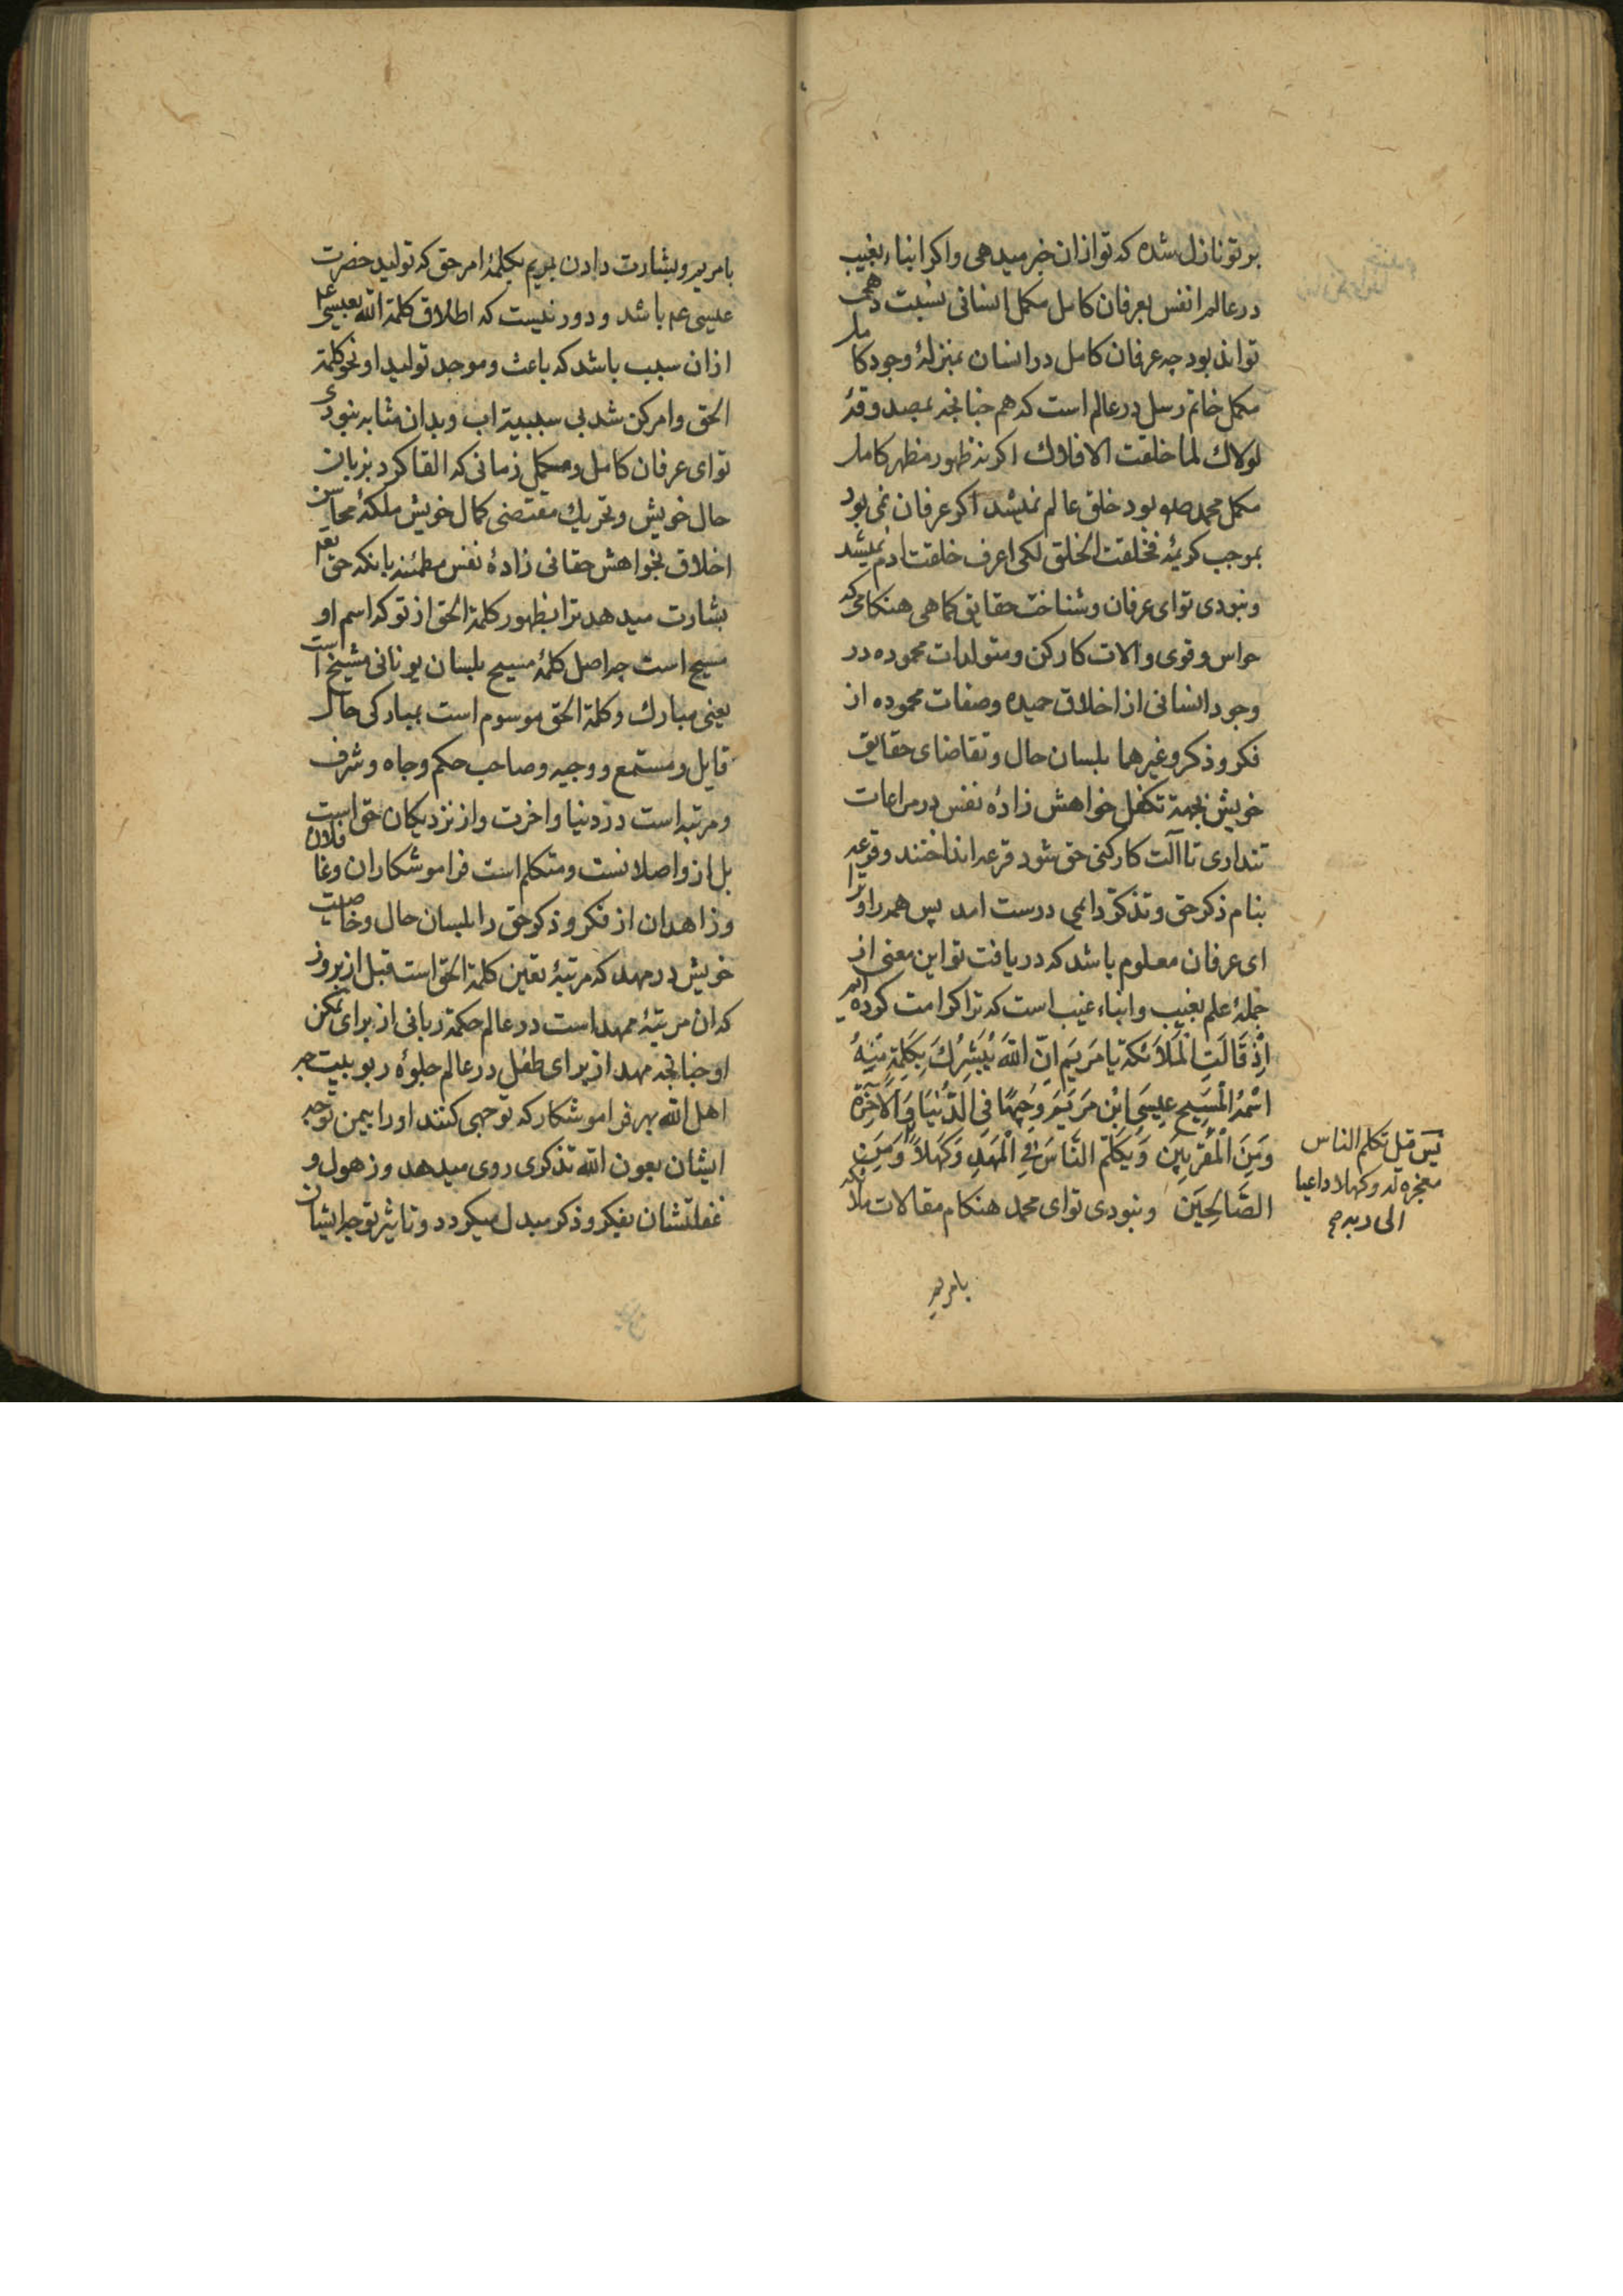 بر تو نازل شده که تو ازان خبر میدهی واکر انباء بغیب
در عالم انفس بعرفان کامل مکمل انسانی نسبت دهی
تواند بود چه عرفان کامل در انسان بمنزلهٔ وجود کامل
مکمل خاتم رسل در عالم است که هم چنانچه بمصدوقهٔ
لولاك لما خلقت الافلاك اکر نه ظهور مظهر کامل
مکمل محمد صلم بود خلق عالم نمیشد اکر عرفان نمی بود
بموجب کریمهٔ فخلقت الخلق لکی اعرف خلقت ادم نمیشد
ونبودی تو ای عرفان وشناخت حقایق کماهی هنکامی که
حواس وقوی والات کارکن ومتولدات محموده در
وجود انسانی از اخلاق حمیده وصفات محموده از
فکر وذکر وغیرهما بلسان حال وتقاضای حقایق
خویش بجهة تکفل خواهش زادهٔ نفس در مراعات
تنداری تا آلت کارکنی حق شود قرعه انداختند وقرعه
بنام ذکر حق وتذکر دایمی درست امد پس همه را وترا
ای عرفان معلوم باشد که دریافت تو این معنی از
جملهٔ علم بغیب وانباء غیب است که ترا کرامت کرده ایم
اِذْ قَالَتِ الْمَلَائكة يَا مَرْيَم اِنَّ اللهَ يُبَشِّرُكِ بِكَلِمَةٍ مِنْهُ
اسْمُهُ الْمَسِيح عِيسَى ابْن مَرْيَمَ وَجِيهًا فِي الدُّنْيَا وَالْاخِرَة
وَمِنَ الْمُقَرَّبِينَ وَيُكَلِّم النَّاسَ فِي الْمَهْدِ وَكَهْلاً وَمِنَ
الصَّالِحِينَ ونبودی تو ای محمد هنکام مقالات ملائکه
یس قیل تکلم الناس
معجزه له وکهلا داعیا
الی ربه
بامریم
بامریم وبشارت دادن بمریم بکلمهٔ امر حق که تولید حضرت
عیسی عم باشد ودور نیست که اطلاق کلمة الله بعیسی عم
ازان سبب باشد که باعث وموجد تولید او نحو کلمة
الحق وامر کن شد بی سببیة اب وبدان مثابه نبودی
تو ای عرفان کامل ومکمل زمانی که القا کرد بزبان
حال خویش وتحریك مقتضی کمال خویش ملکهٔ محاسن
اخلاق بخواهش حقانی زادهٔ نفس مطمئنه بانکه حق تعم
بشارت میدهد ترا بظهور کلمة الحق از تو که اسم او
مسیح است چه اصل کلمهٔ مسیح بلسان یونانی مشیخ است
یعنی مبارك وکلمة الحق موسوم است بمبارکی حال
قایل ومستمع ووجیه وصاحب حکم وجاه وشرف
ومرتبه است در دنیا واخرت واز نزدیکان حق است
بل از واصلانست ومتکلم است فراموشکاران وغافلان
وزاهدان از فکر وذکر حق را بلسان حال وخاصیت
خویش در مهد که مرتبهٔ تعین کلمة الحق است قبل از بروز
که ان مرتبهٔ مهد است در عالم حکمة ربانی از برای تمکن
او چنانچه مهد از برای طفل در عالم جلوهٔ ربوبیت چه
اهل الله بهر فراموشکار که توجهی کنند او را بیمن توجه
ایشان بعون الله تذکری روی میدهد وزهول و
غفلتشان بفکر وذکر مبدل میکردد وتاثیر توجه ایشان